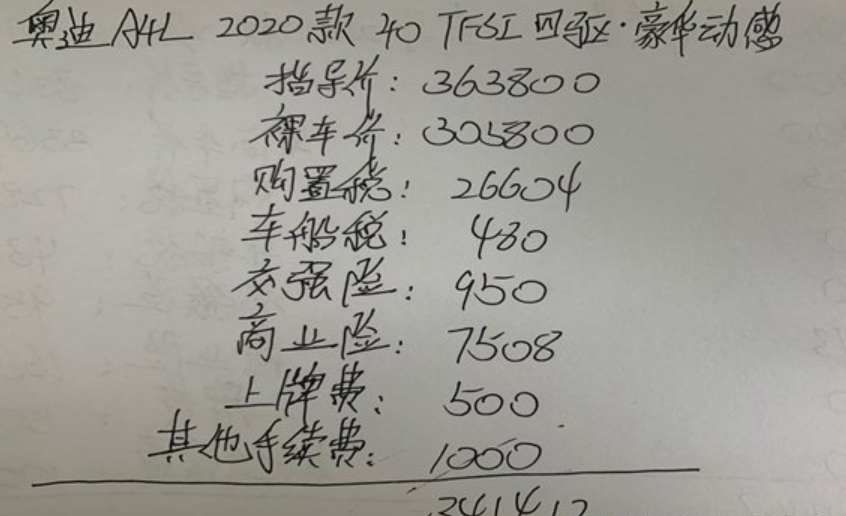 奥迪 A4L 2020款 40 TFSI 四驱·豪华动感
指导价: 363800
裸车价: 305800
购置税: 26604
车船税: 480
交强险: 950
商业险: 7508
上牌费: 500
其他手续费: 1000